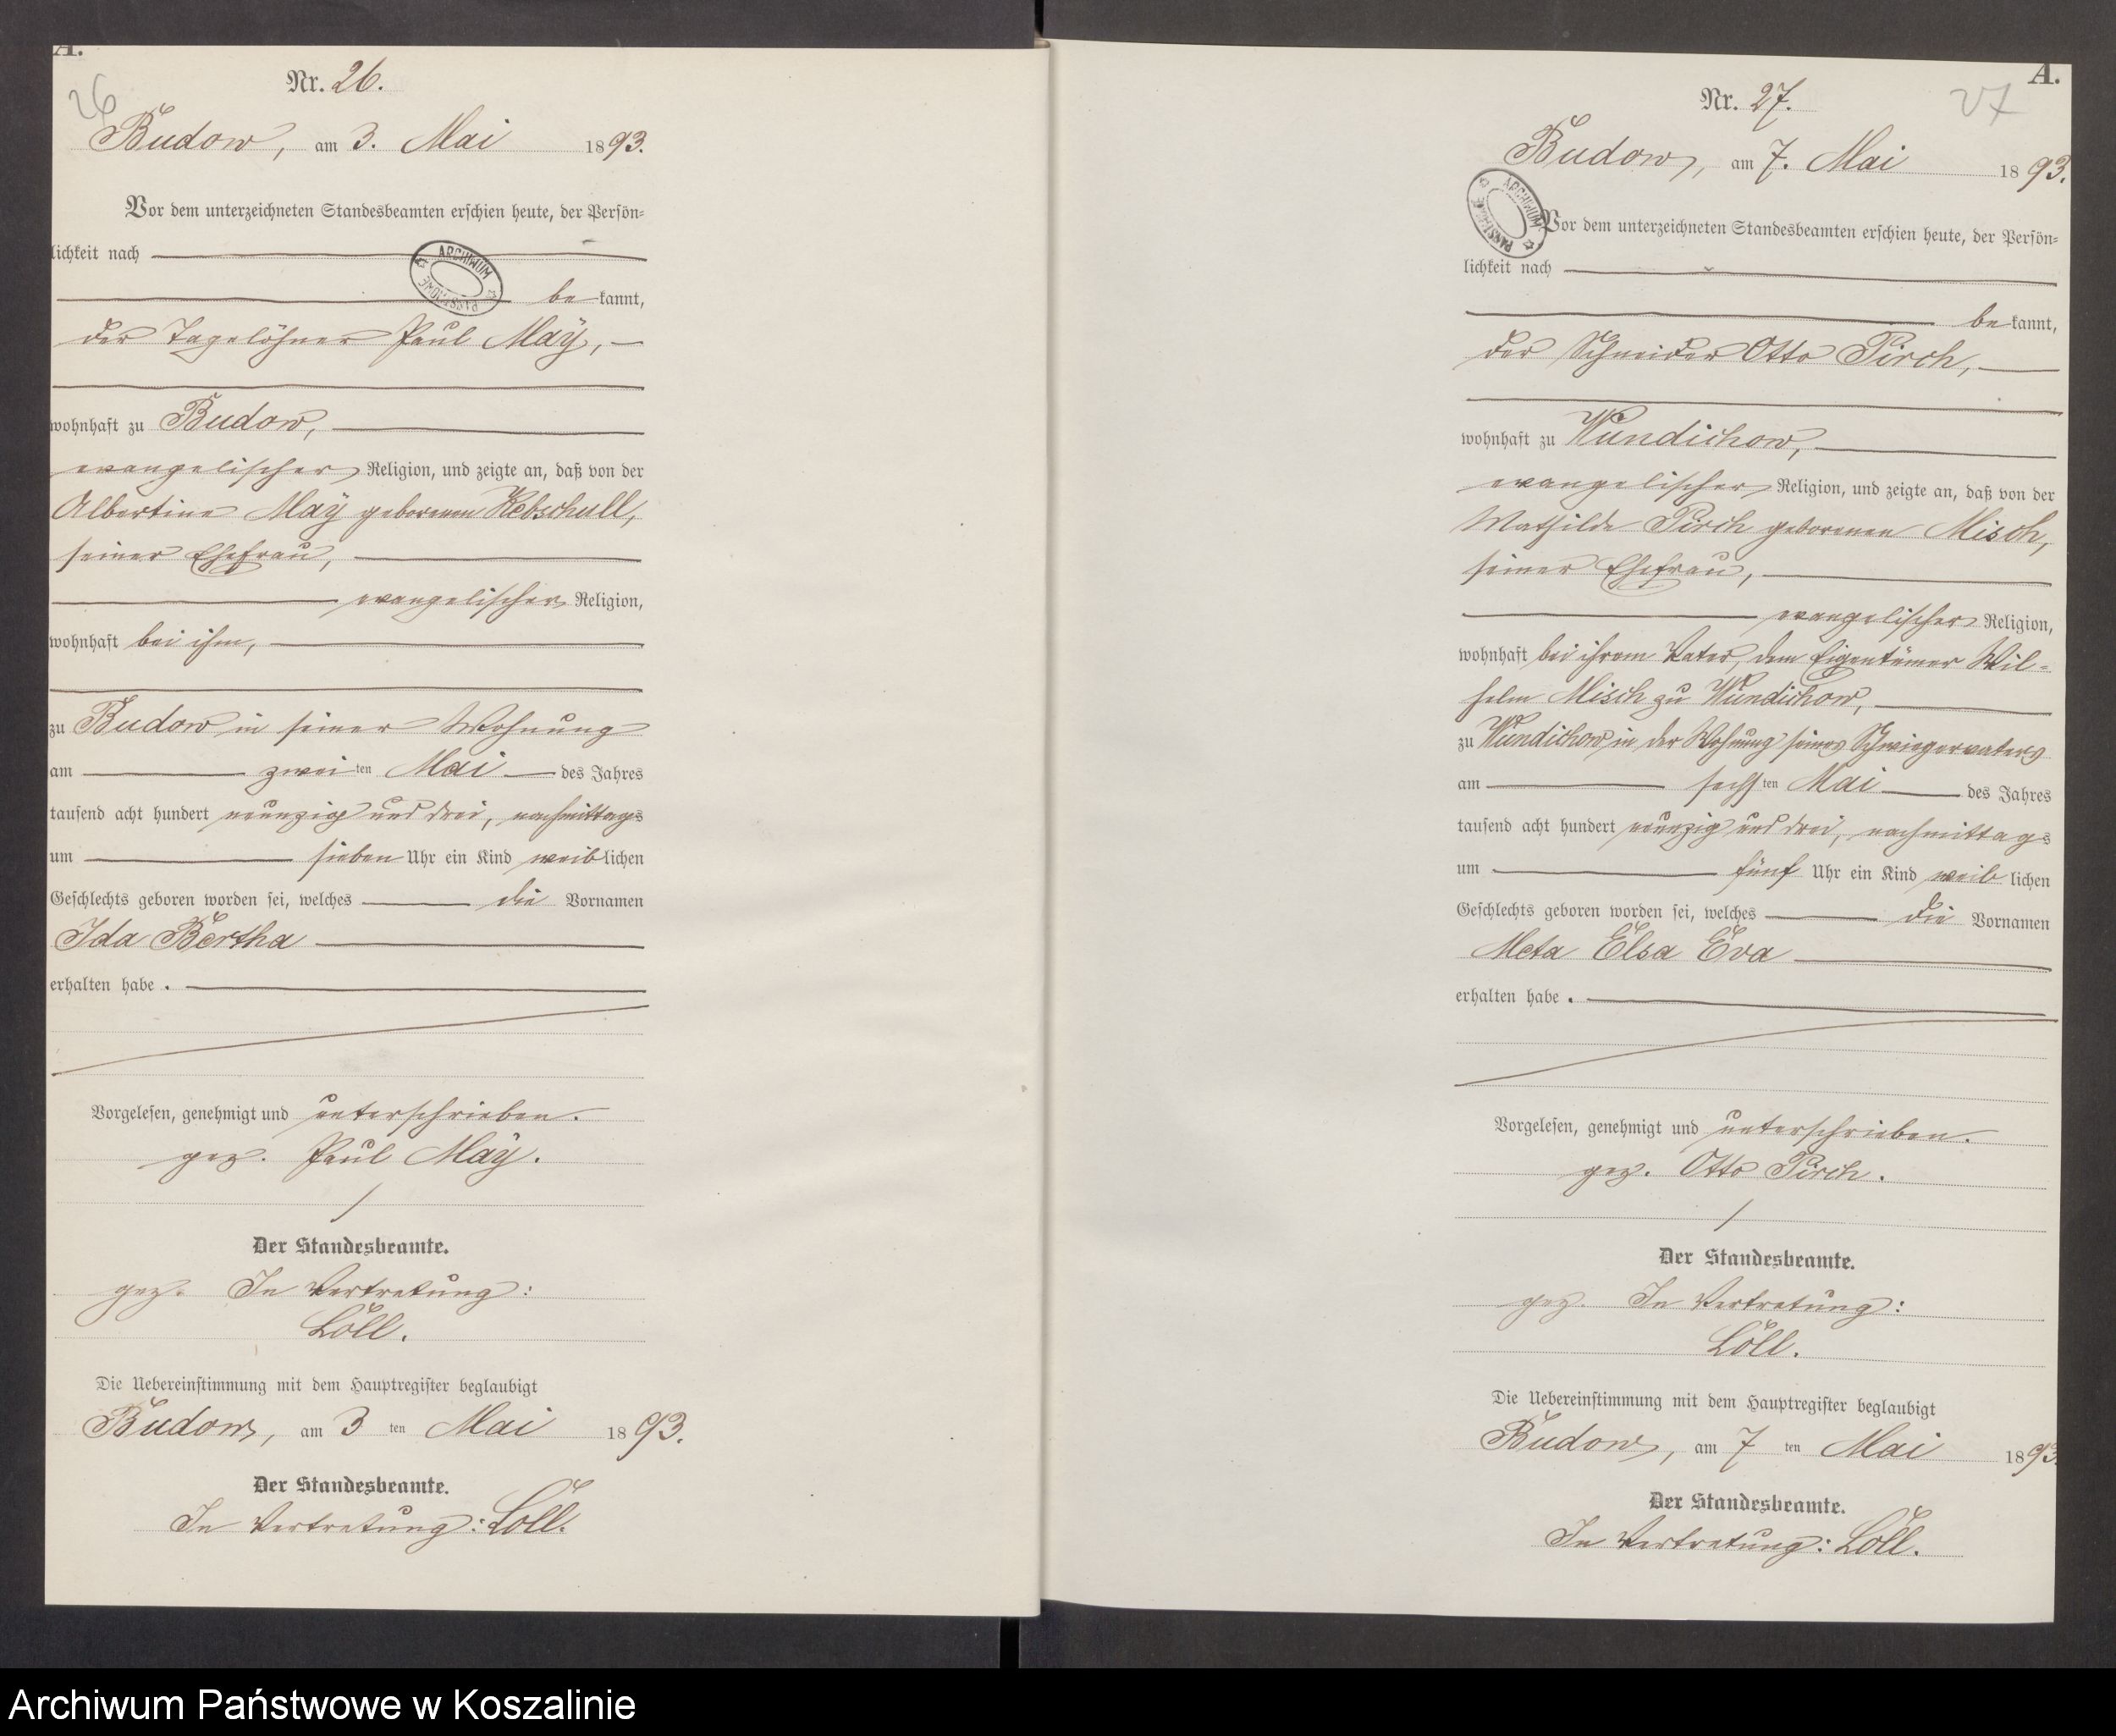 A.
26
Nr. 26.
Budow, am 3. Mai 1893.
Vor dem unterzeichneten Standesbeamten erschien heute, der Persön-
lichkeit nach
ARCHIWUM PAŃSTWOWE
bekannt,
der Tagelöhner Paul Maÿ,
wohnhaft zu Budow,
evangelischer Religion, und zeigte an, daß von der
Albertine Maÿ geborenen Kebschull,
seiner Ehefrau,
evangelischer Religion,
wohnhaft bei ihm,
zu Budow in seiner Wohnung
am zweiten Mai des Jahres
tausend acht hundert neunzig und drei, nachmittags
um sieben Uhr ein Kind weiblichen
Geschlechts geboren worden sei, welches die Vornamen
Ida Bertha
erhalten habe.
Vorgelesen, genehmigt und unterschrieben.
gez. Paul Maÿ.
Der Standesbeamte.
gez. In Vertretung:
Löll.
Die Uebereinstimmung mit dem Hauptregister beglaubigt
Budow, am 3 ten Mai 1893.
Der Standesbeamte.
In Vertretung: Löll.
A.
27
Nr. 27.
Budow, am 7. Mai 1893.
ARCHIWUM PAŃSTWOWE
Vor dem unterzeichneten Standesbeamten erschien heute, der Persön-
lichkeit nach
bekannt,
der Schneider Otto Pirch,
wohnhaft zu Wundichow,
evangelischer Religion, und zeigte an, daß von der
Mathilde Pirch geborenen Misch,
seiner Ehefrau,
evangelischer Religion,
wohnhaft bei ihrem Vater, dem Eigentümer Wil-
helm Misch zu Wundichow,
zu Wundichow in der Wohnung seines Schwiegervaters
am sechsten Mai des Jahres
tausend acht hundert neunzig und drei, nachmittags
um fünf Uhr ein Kind weiblichen
Geschlechts geboren worden sei, welches die Vornamen
Meta Elsa Eva
erhalten habe.
Vorgelesen, genehmigt und unterschrieben.
gez. Otto Pirch.
Der Standesbeamte.
gez. In Vertretung:
Löll.
Die Uebereinstimmung mit dem Hauptregister beglaubigt
Budow, am 7 ten Mai 1893
Der Standesbeamte.
In Vertretung: Löll.
Archiwum Państwowe w Koszalinie